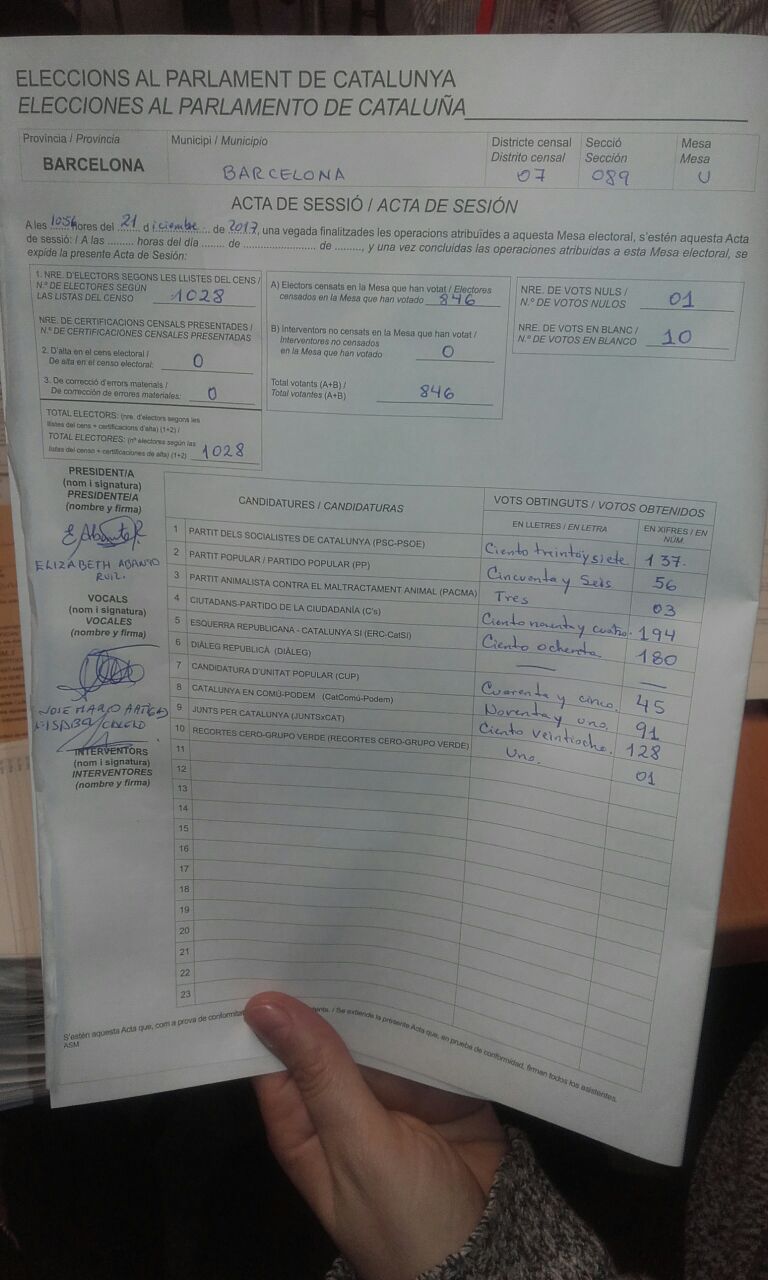 ELECCIONS AL PARLAMENT DE CATALUNYA
ELECCIONES AL PARLAMENTO DE CATALUÑA
Província / Provincia
BARCELONA
Municipi / Municipio
BARCELONA
Districte censal
Distrito censal
07
Secció
Sección
089
Mesa
Mesa
U
ACTA DE SESSIÓ / ACTA DE SESIÓN
A les 1056 hores del 21 diciembre de 2017, una vegada finalitzades les operacions atribuïdes a aquesta Mesa electoral, s'estén aquesta Acta
de sessió: / A las ......... horas del día ....... de ..................... de ........., y una vez concluidas las operaciones atribuidas a esta Mesa electoral, se
expide la presente Acta de Sesión:
1. NRE. D'ELECTORS SEGONS LES LLISTES DEL CENS /
N.º DE ELECTORES SEGÚN
LAS LISTAS DEL CENSO 1028
NRE. DE CERTIFICACIONS CENSALS PRESENTADES /
N.º DE CERTIFICACIONES CENSALES PRESENTADAS
2. D'alta en el cens electoral /
De alta en el censo electoral: 0
3. De correcció d'errors materials /
De corrección de errores materiales: 0
TOTAL ELECTORS: (nre. d'electors segons les
llistes del cens + certificacions d'alta) (1+2) /
TOTAL ELECTORES: (nº electores según las
listas del censo + certificaciones de alta) (1+2) 1028
A) Electors censats en la Mesa que han votat / Electores
censados en la Mesa que han votado 846
B) Interventors no censats en la Mesa que han votat /
Interventores no censados
en la Mesa que han votado 0
Total votants (A+B) /
Total votantes (A+B) 846
NRE. DE VOTS NULS /
N.º DE VOTOS NULOS 01
NRE. DE VOTS EN BLANC /
N.º DE VOTOS EN BLANCO 10
PRESIDENT/A
(nom i signatura)
PRESIDENTE/A
(nombre y firma)
ELIZABETH ABANTO
RUIZ.
VOCALS
(nom i signatura)
VOCALES
(nombre y firma)
INTERVENTORS
(nom i signatura)
INTERVENTORES
(nombre y firma)
CANDIDATURES / CANDIDATURAS
VOTS OBTINGUTS / VOTOS OBTENIDOS
EN LLETRES / EN LETRA
EN XIFRES / EN NÚM.
1 PARTIT DELS SOCIALISTES DE CATALUNYA (PSC-PSOE) Ciento treinta y siete 137.
2 PARTIT POPULAR / PARTIDO POPULAR (PP) Cincuenta y Seis 56
3 PARTIT ANIMALISTA CONTRA EL MALTRACTAMENT ANIMAL (PACMA) Tres 03
4 CIUTADANS-PARTIDO DE LA CIUDADANÍA (C's) Ciento noventa y cuatro. 194
5 ESQUERRA REPUBLICANA - CATALUNYA SI (ERC-CatSí) Ciento ochenta 180
6 DIÀLEG REPUBLICÀ (DIÀLEG) — —
7 CANDIDATURA D'UNITAT POPULAR (CUP) Cuarenta y cinco. 45
8 CATALUNYA EN COMÚ-PODEM (CatComú-Podem) Noventa y uno. 91
9 JUNTS PER CATALUNYA (JUNTSxCAT) Ciento veintiocho. 128
10 RECORTES CERO-GRUPO VERDE (RECORTES CERO-GRUPO VERDE) Uno. 01
11
12
13
14
15
16
17
18
19
20
21
22
23
S'estén aquesta Acta que, com a prova de conformitat / Se extiende la presente Acta que, en prueba de conformidad, firman todos los asistentes.
ASM